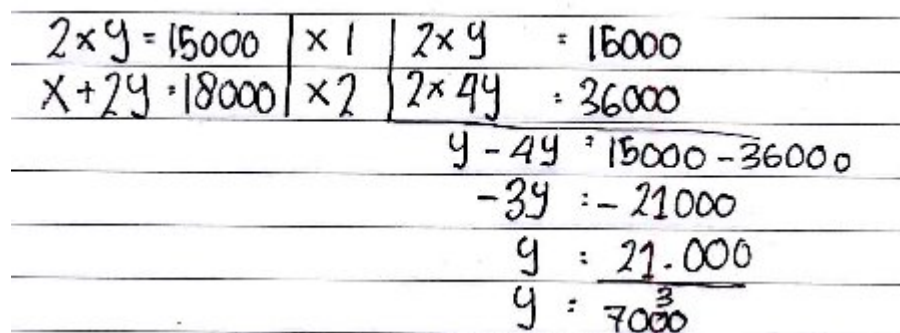 2xy = 15000 | x 1 | 2xy = 15000
x+2y = 18000 | x2 | 2x 4y = 36000
y - 4y = 15000 - 36000
-3y = - 21000
y = 21.000
3
y = 7000